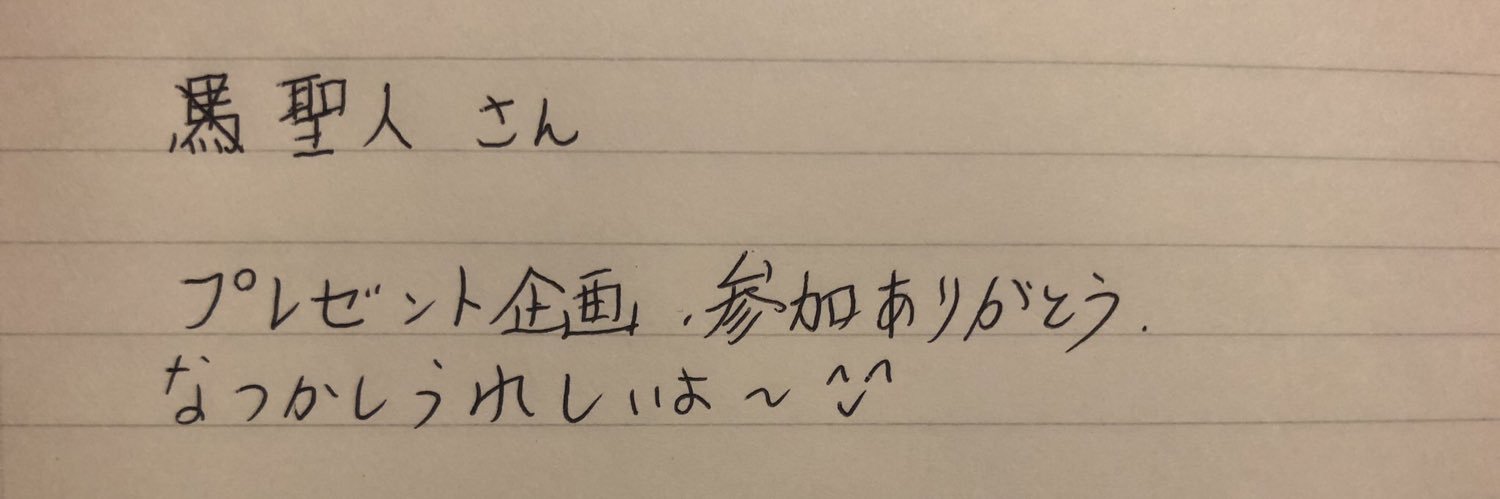 馬 聖人 さん
プレゼント企画、参加ありがとう.
なつかしうれしいよ~